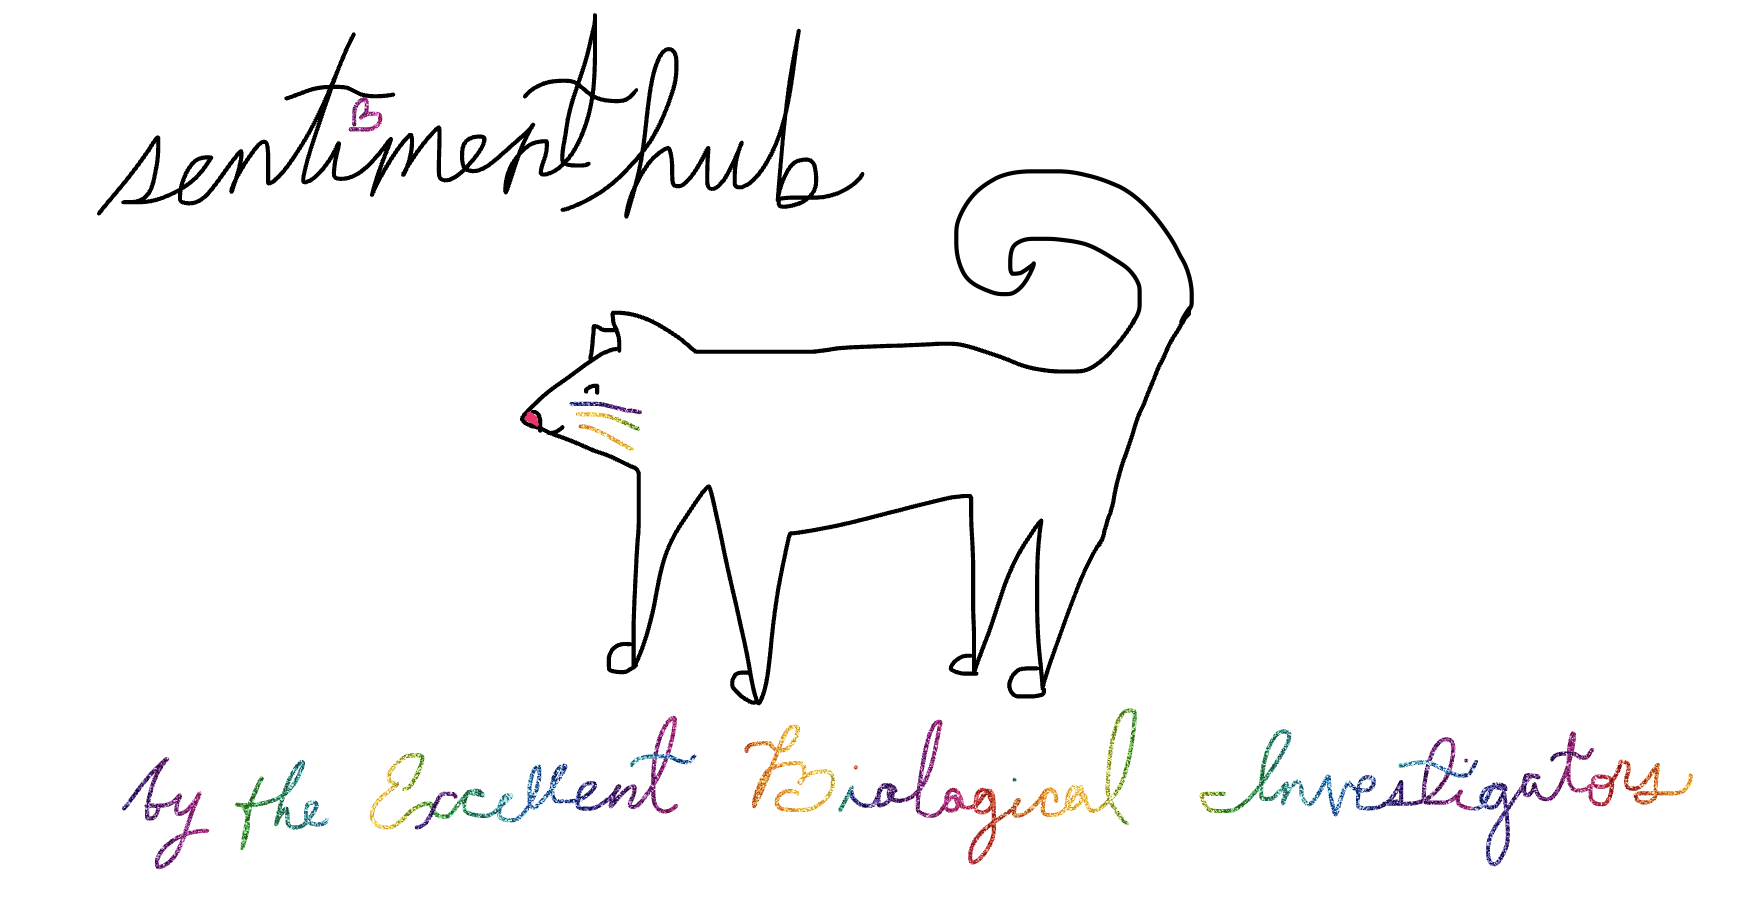 sentiment hub
by the Excellent Biological Investigators